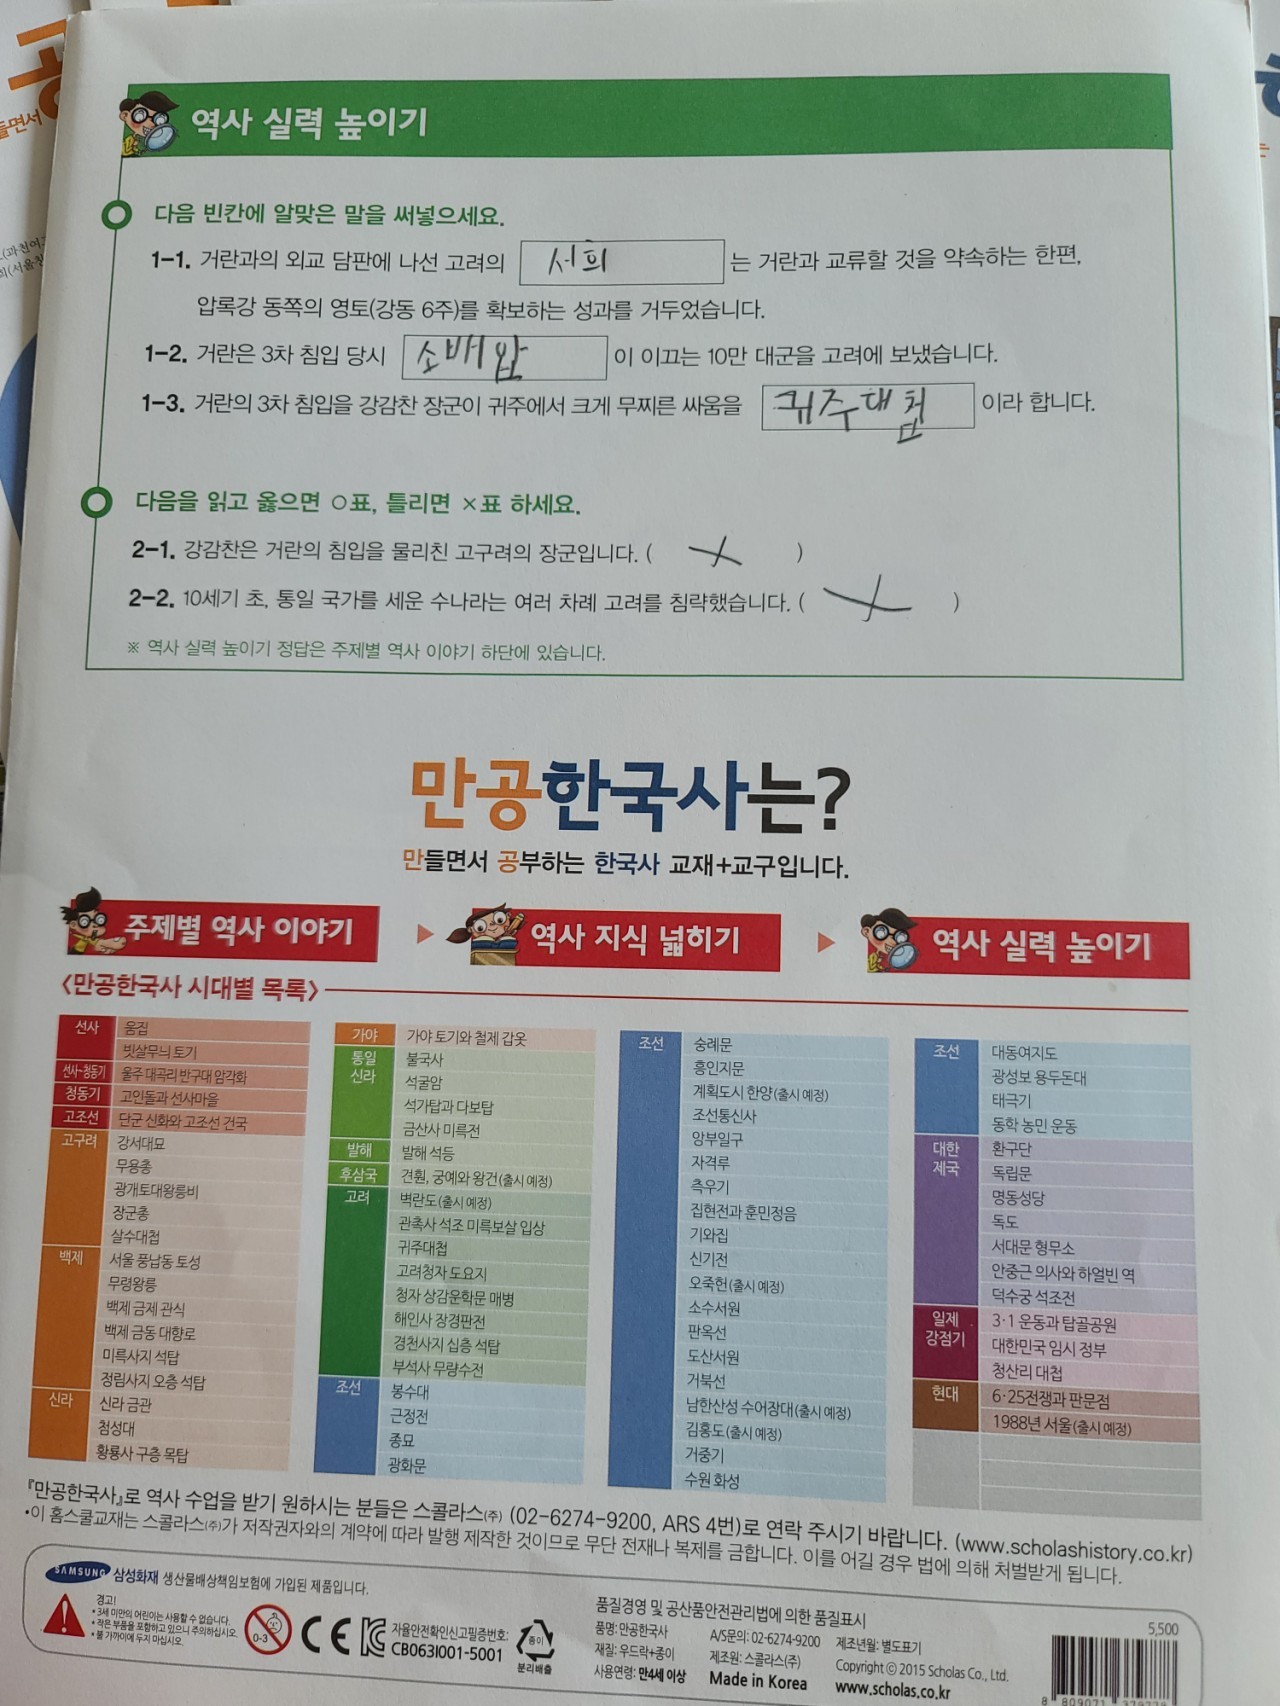 공
들면서
역사 실력 높이기
다음 빈칸에 알맞은 말을 써넣으세요.
1-1. 거란과의 외교 담판에 나선 고려의 서희 는 거란과 교류할 것을 약속하는 한편,
압록강 동쪽의 영토(강동 6주)를 확보하는 성과를 거두었습니다.
1-2. 거란은 3차 침입 당시 소배압 이 이끄는 10만 대군을 고려에 보냈습니다.
1-3. 거란의 3차 침입을 강감찬 장군이 귀주에서 크게 무찌른 싸움을 귀주대첩 이라 합니다.
다음을 읽고 옳으면 ○표, 틀리면 ×표 하세요.
2-1. 강감찬은 거란의 침입을 물리친 고구려의 장군입니다. ( × )
2-2. 10세기 초, 통일 국가를 세운 수나라는 여러 차례 고려를 침략했습니다. ( × )
※ 역사 실력 높이기 정답은 주제별 역사 이야기 하단에 있습니다.
만공한국사는?
만들면서 공부하는 한국사 교재+교구입니다.
주제별 역사 이야기 ▶ 역사 지식 넓히기 ▶ 역사 실력 높이기
<만공한국사 시대별 목록>
선사 움집
빗살무늬 토기
선사~청동기 울주 대곡리 반구대 암각화
청동기 고인돌과 선사마을
고조선 단군 신화와 고조선 건국
고구려 강서대묘
무용총
광개토대왕릉비
장군총
살수대첩
백제 서울 풍납동 토성
무령왕릉
백제 금제 관식
백제 금동 대향로
미륵사지 석탑
정림사지 오층 석탑
신라 신라 금관
첨성대
황룡사 구층 목탑
가야 가야 토기와 철제 갑옷
통일 신라 불국사
석굴암
석가탑과 다보탑
금산사 미륵전
발해 발해 석등
후삼국 견훤, 궁예와 왕건(출시 예정)
고려 벽란도(출시 예정)
관촉사 석조 미륵보살 입상
귀주대첩
고려청자 도요지
청자 상감운학문 매병
해인사 장경판전
경천사지 십층 석탑
부석사 무량수전
조선 봉수대
근정전
종묘
광화문
조선 숭례문
흥인지문
계획도시 한양(출시 예정)
조선통신사
앙부일구
자격루
측우기
집현전과 훈민정음
기와집
신기전
오죽헌(출시 예정)
소수서원
판옥선
도산서원
거북선
남한산성 수어장대(출시 예정)
김홍도(출시 예정)
거중기
수원 화성
조선 대동여지도
광성보 용두돈대
태극기
동학 농민 운동
대한 제국 환구단
독립문
명동성당
독도
서대문 형무소
안중근 의사와 하얼빈 역
덕수궁 석조전
일제 강점기 3·1 운동과 탑골공원
대한민국 임시 정부
청산리 대첩
현대 6·25전쟁과 판문점
1988년 서울(출시 예정)
『만공한국사』로 역사 수업을 받기 원하시는 분들은 스콜라스㈜ (02-6274-9200, ARS 4번)로 연락 주시기 바랍니다. (www.scholashistory.co.kr)
•이 홈스쿨교재는 스콜라스㈜가 저작권자와의 계약에 따라 발행 제작한 것이므로 무단 전재나 복제를 금합니다. 이를 어길 경우 법에 의해 처벌받게 됩니다.
SAMSUNG 삼성화재 생산물배상책임보험에 가입된 제품입니다.
경고!
• 3세 미만의 어린이는 사용할 수 없습니다.
• 작은 부품을 포함하고 있으니 주의하십시오.
• 불 가까이에 두지 마십시오.
0-3
CE
자율안전확인신고필증번호:
CB063I001-5001
종이
분리배출
품질경영 및 공산품안전관리법에 의한 품질표시
품명: 만공한국사 A/S문의: 02-6274-9200 제조년월: 별도표기
재질: 우드락+종이 제조원: 스콜라스(주) Copyright ⓒ 2015 Scholas Co., Ltd.
사용연령: 만4세 이상 Made in Korea www.scholas.co.kr
5,500